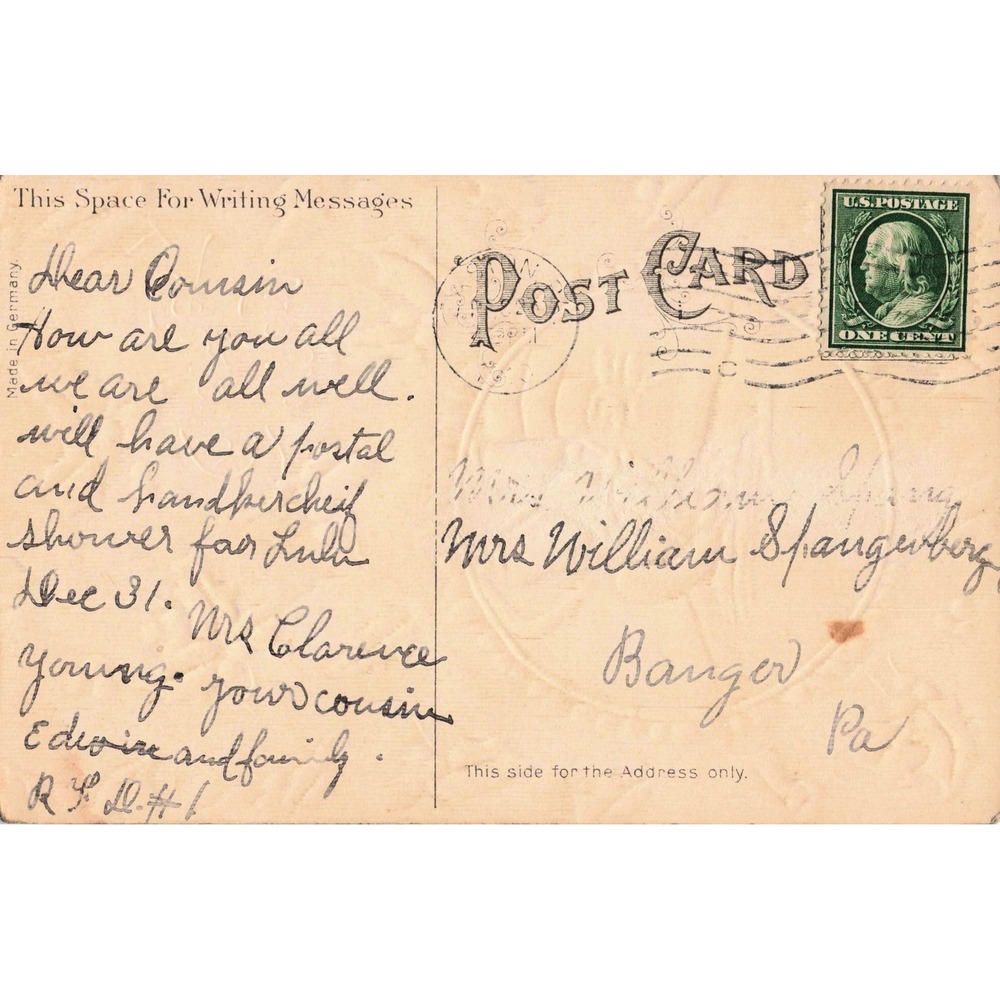 This Space For Writing Messages
Made in Germany.
Dear Cousin
How are you all
we are all well.
will have a postal
and handkercheif
shower for Lulu
Dec 31.
Mrs Clarence
young. your cousin
Edwin and family.
R F D. #1
POST CARD
U.S. POSTAGE
ONE CENT
Mrs William Spang
Mrs William Spangenberg
Banger
Pa
This side for the Address only.